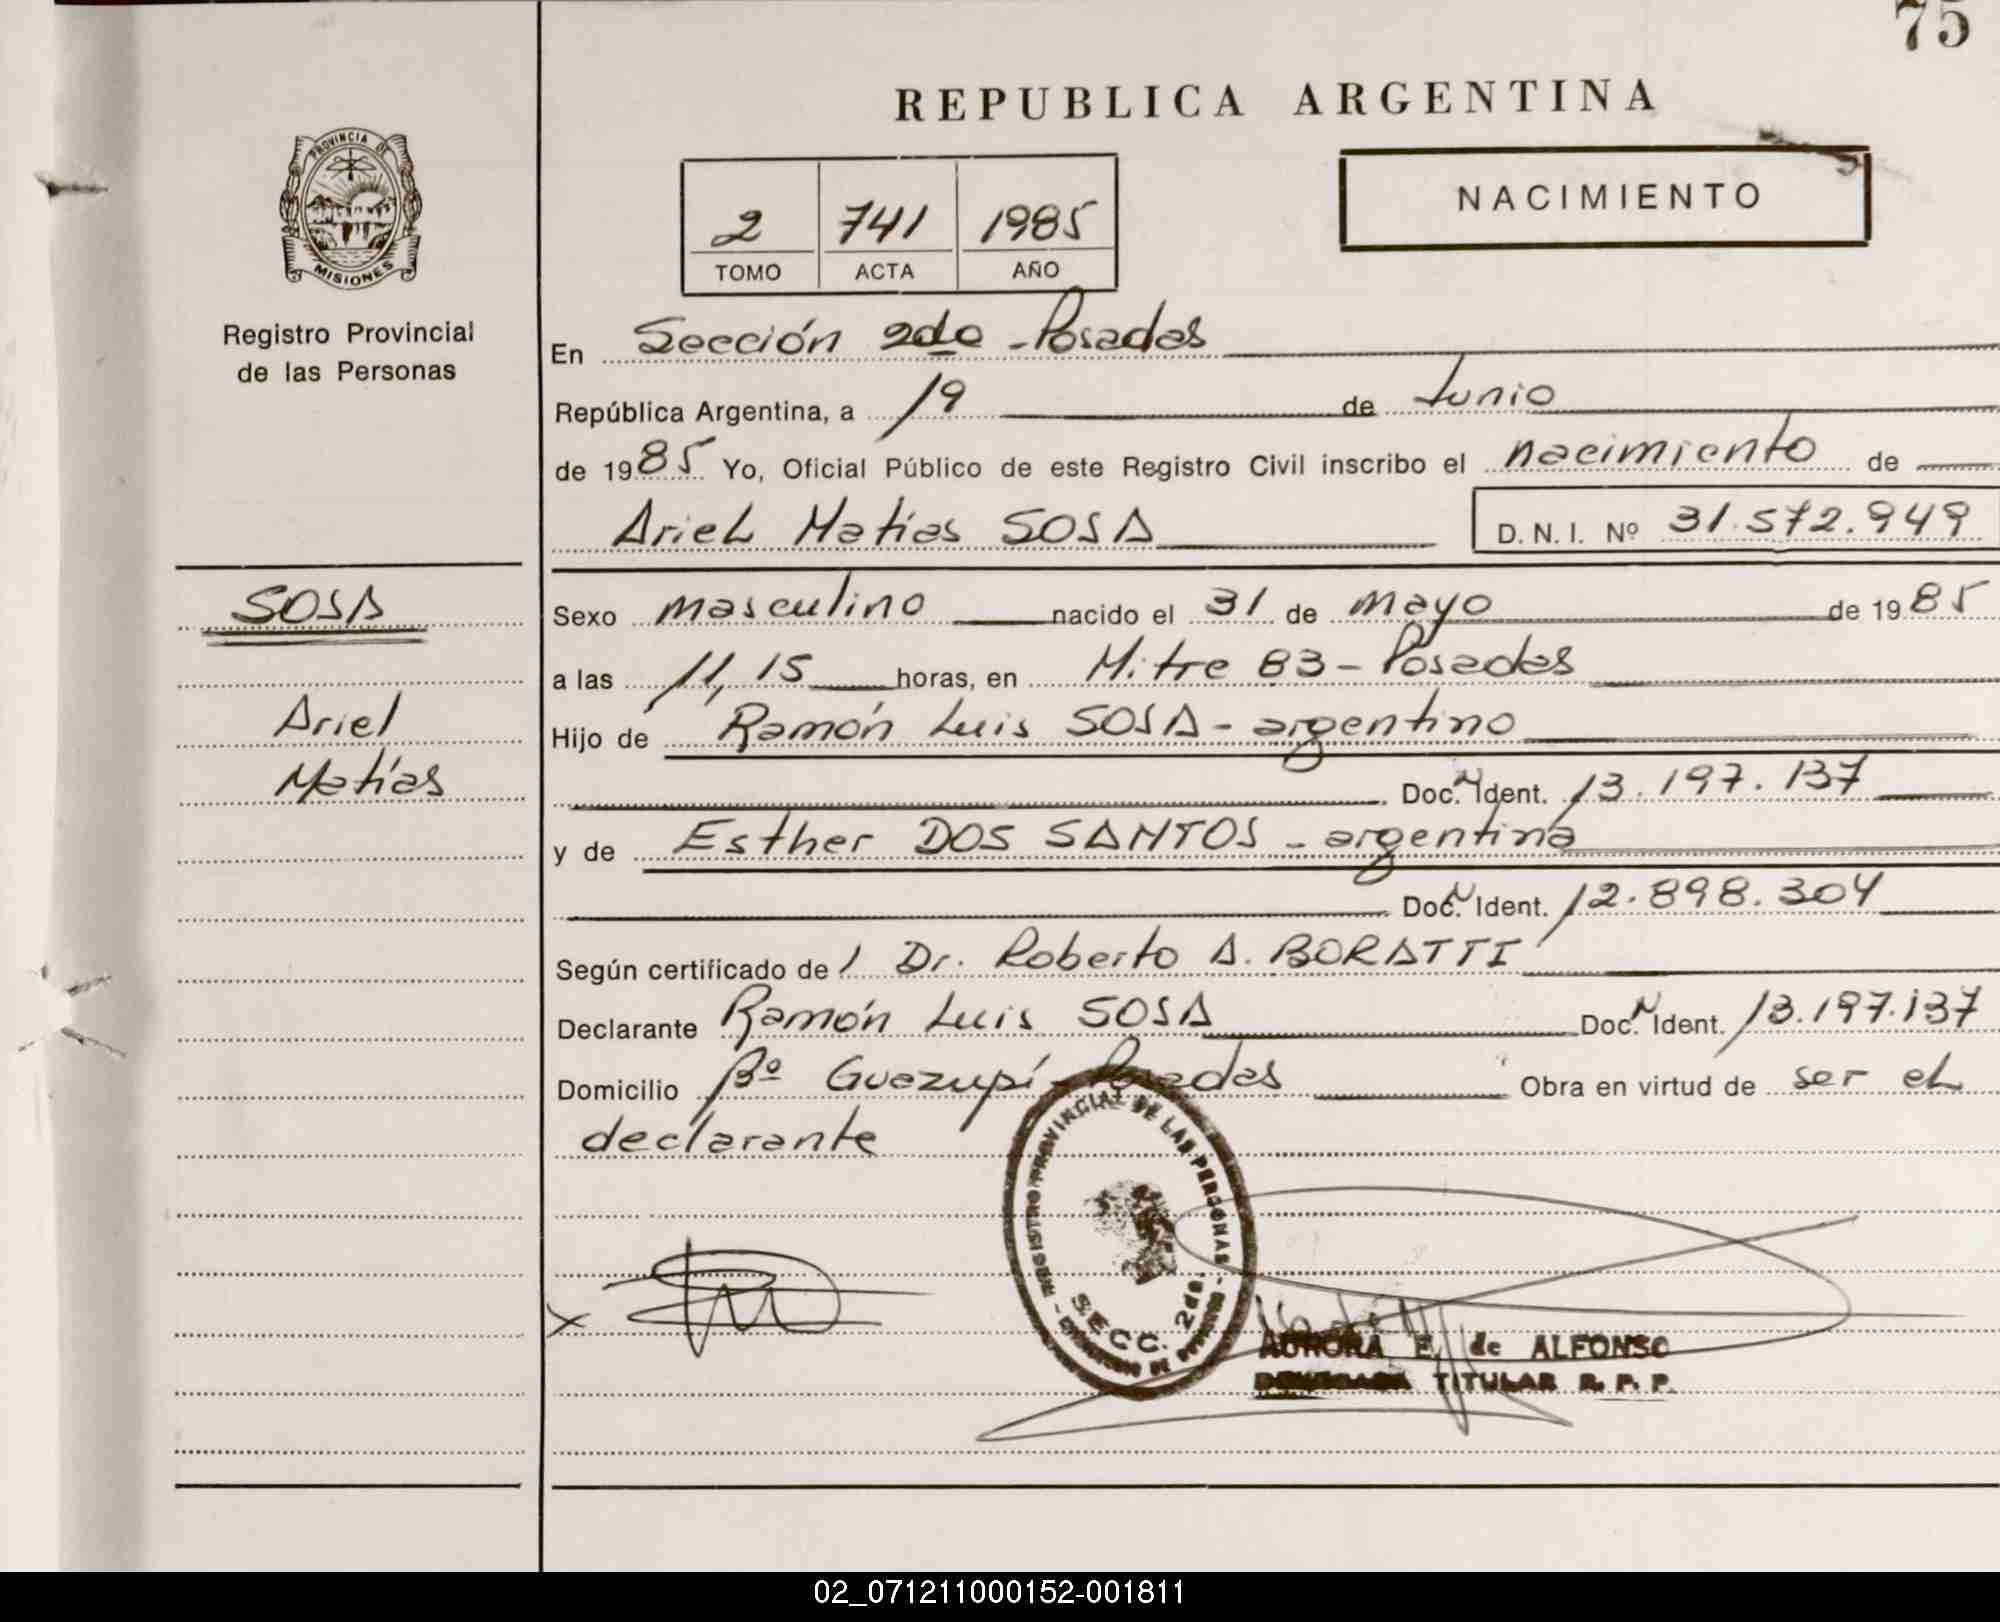 75
REPUBLICA ARGENTINA
PROVINCIA DE
MISIONES
Registro Provincial
de las Personas
2 741 1985
TOMO ACTA AÑO
NACIMIENTO
En Sección 2da - Posadas
República Argentina, a 19 de Junio
de 1985 Yo, Oficial Público de este Registro Civil inscribo el nacimiento de
Ariel Matías SOSA D. N. I. Nº 31.572.949
SOSA
Ariel
Matías
Sexo masculino nacido el 31 de mayo de 1985
a las 11,15 horas, en Mitre 83 - Posadas
Hijo de Ramón Luis SOSA - argentino
Doc. N Ident. 13.197.137
y de Esther DOS SANTOS - argentina
Doc. N Ident. 12.898.304
Según certificado de l Dr. Roberto A. BORATTI
Declarante Ramón Luis SOSA Doc. N Ident. 13.197.137
Domicilio Bº Guazupí - Posadas Obra en virtud de ser el
declarante
REGISTRO PROVINCIAL DE LAS PERSONAS
SECC. 2da.
x
AURORA E. de ALFONSO
DELEGADA TITULAR R. P. P.
02_071211000152-001811